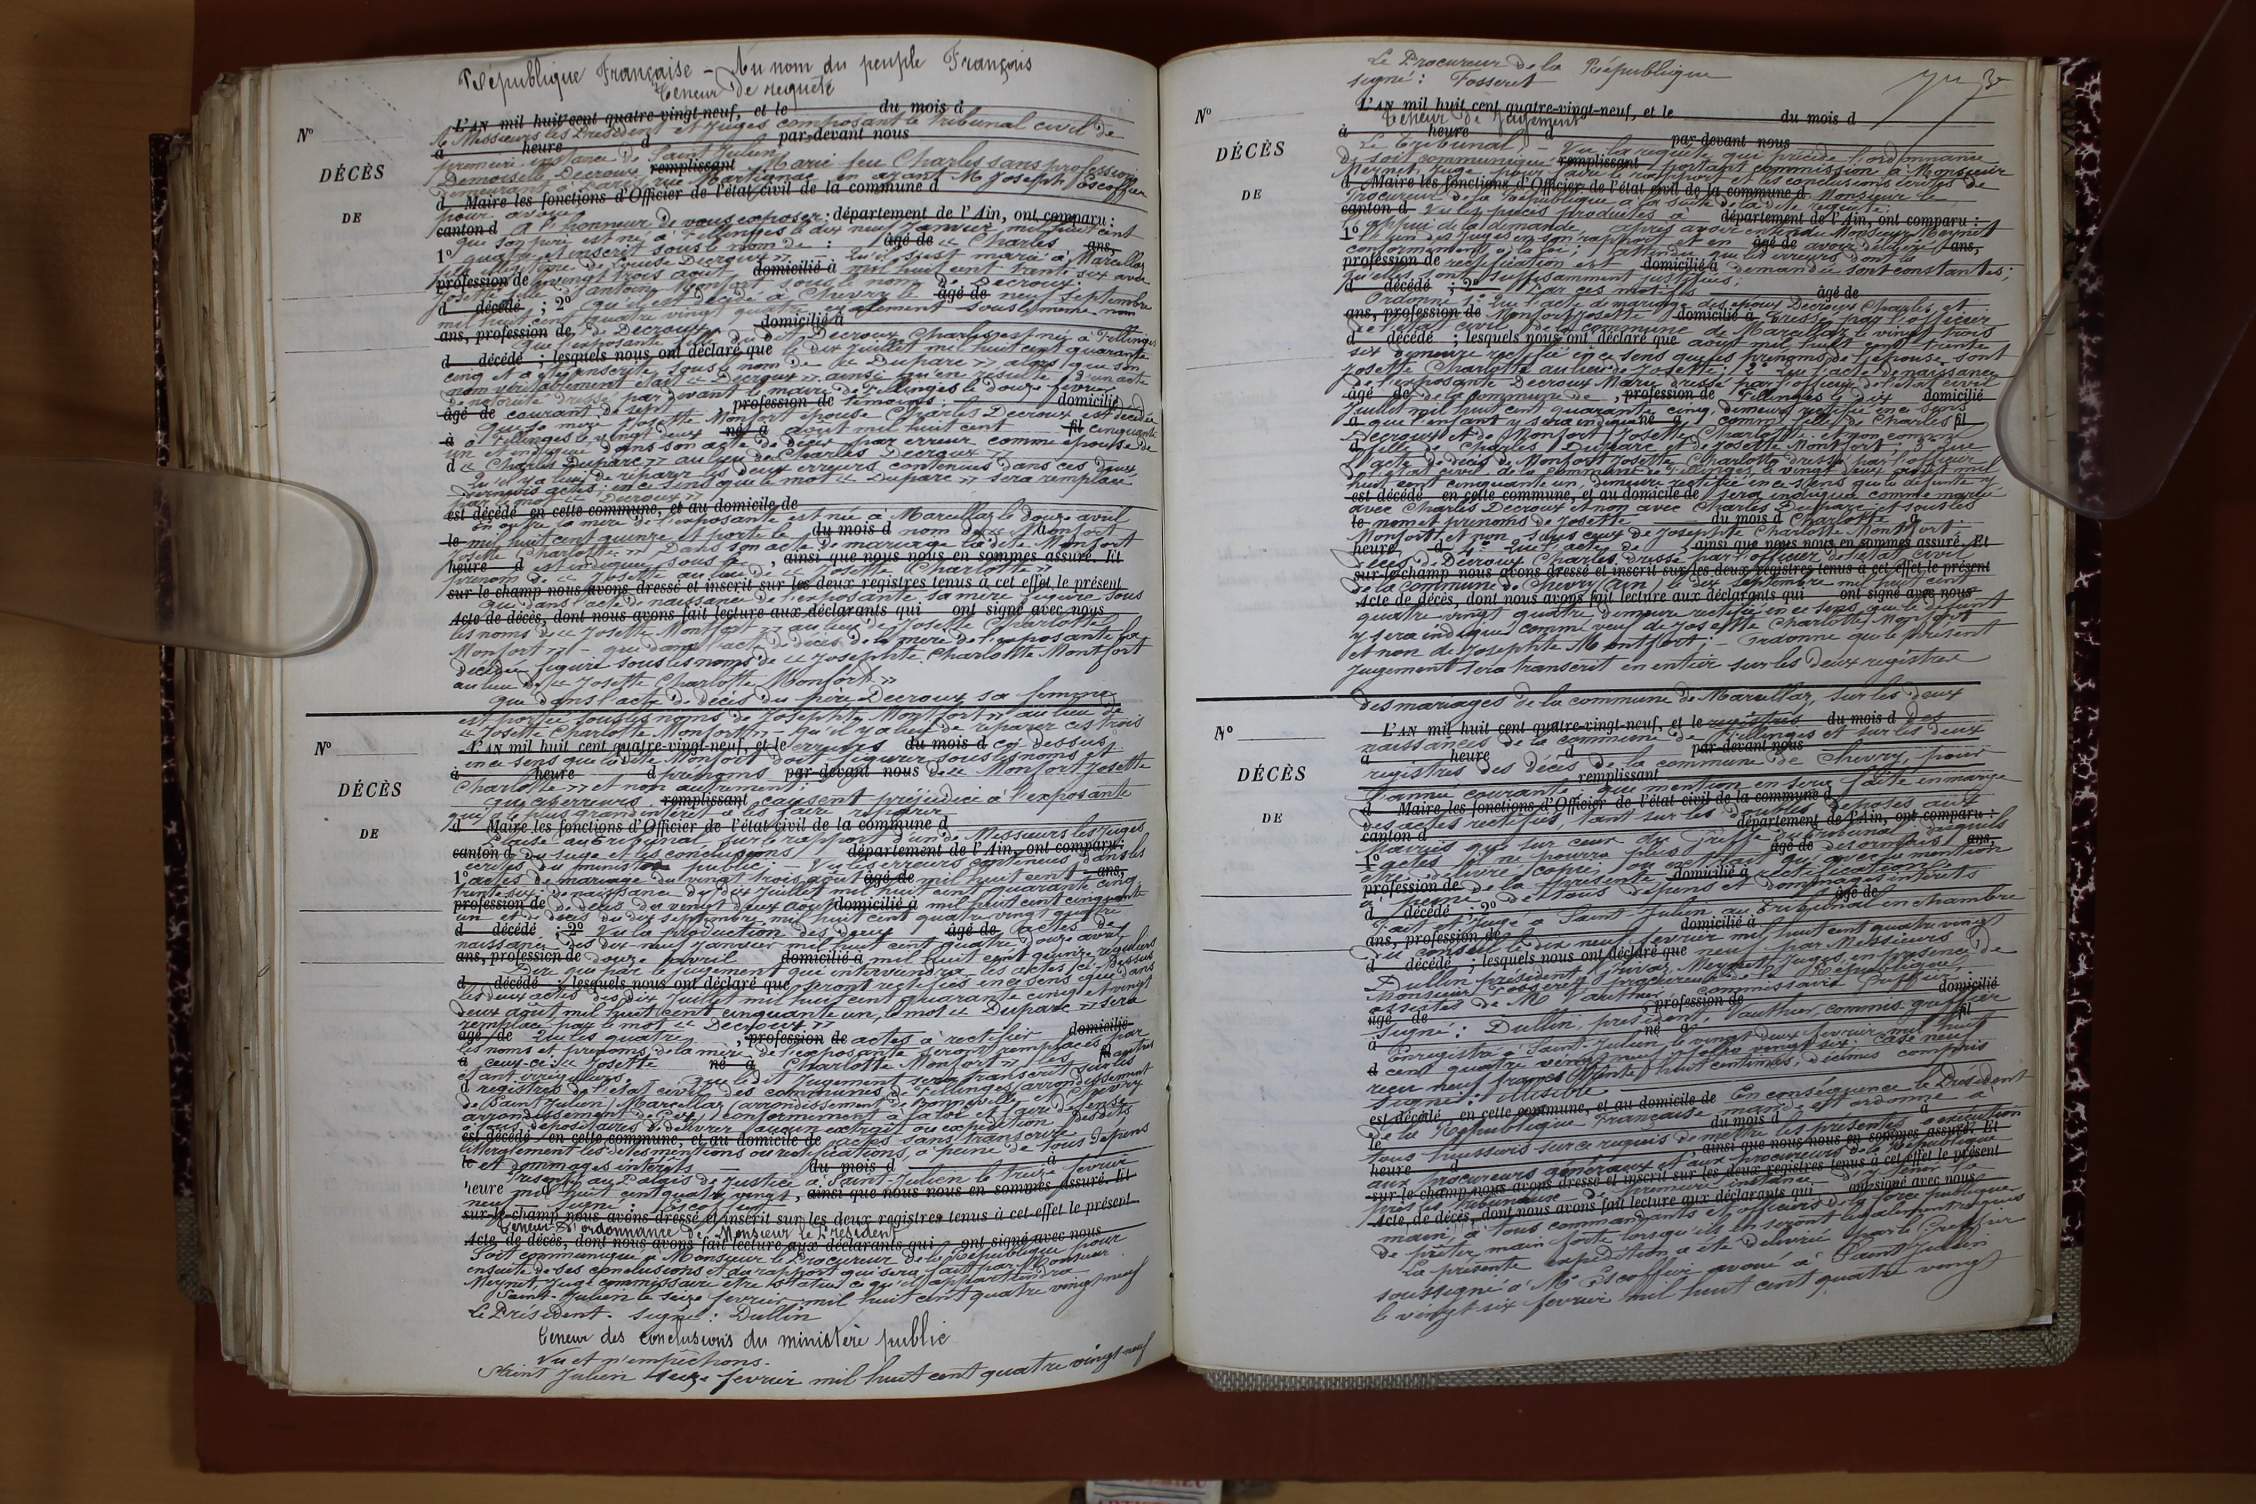 République Française – Au nom du peuple Français
Teneur de requête
L'AN mil huit cent quatre-vingt-neuf, et le du mois d
A Messieurs les Président et Juges composant le Tribunal civil de
N°
à heure d par-devant nous
première instance de Saint Julien
DÉCÈS
remplissant
Demoiselle Decroux Marie feu Charles sans profession
demeurant à Paris, rue Martignac en ayant Me Joseph Escoffier
d Maire les fonctions d'Officier de l'état civil de la commune d
DE
pour avoué
canton d département de l'Ain, ont comparu :
A l'honneur de vous exposer :
que son père est né à Fillinges le dix neuf Janvier mil huit cent
1° âgé de ans,
quatre et inscrit sous le nom de : « Charles
fils illégitime de Louise Decroux ». Qu'il s'est marié à Marcellaz
profession de domicilié à
le vingt trois août mil huit cent trente six avec
Josette fille d'Antoine Monfort sous le nom de Decroux.
d décédé ; 2° âgé de
Qu'il est décédé à Chevry le neuf septembre
mil huit cent quatre vingt quatre également sous le même nom
ans, profession de domicilié à
de Decroux.
Que l'exposante fille du dit Decroux Charles est née à Fillinges
d décédé ; lesquels nous ont déclaré que
le dix Juillet mil huit cent quarante
cinq et a été inscrite sous le nom de « Duparc » alors que son
nom véritablement était « Decroux » ainsi qu'en résulte d'un acte
de notoriété dressé par devant le maire de Fillinges le douze février
âgé de , profession de domicilié
courant de sept témoins.
Que sa mère Josette Monfort épouse Charles Decroux est décédée
à né à fil
à Fillinges le vingt deux août mil huit cent cinquante
un et indiquée dans son acte de décès par erreur comme épouse de
d « Charles Duparc » au lieu de Charles Decroux »
Qu'il y a lieu de réparer les deux erreurs contenues dans ces deux
derniers actes, en ce sens que le mot « Duparc » sera remplacé
par le mot « Decroux »
est décédé en cette commune, et au domicile de
En outre la mère de l'exposante est née à Marcellaz le douze avril
le du mois d à
mil huit cent quinze et porte le nom de « Monfort
Josette Charlotte » Dans son acte de mariage la dite Monfort
heure d , ainsi que nous nous en sommes assuré. Et
est indiquée sous le
prénom de « Josette au lieu de « Josette Charlotte »
sur-le-champ nous avons dressé et inscrit sur les deux registres tenus à cet effet le présent
Que dans l'acte de naissance de l'exposante sa mère figure sous
Acte de décès, dont nous avons fait lecture aux déclarants qui ont signé avec nous
les noms de « Josette Montfort » au lieu de Josette Charlotte
Monfort » – que dans l'acte de décès de la mère de l'exposante la
décédée figure sous les noms de « Josephte Charlotte Montfort
au lieu de « Josette Charlotte Monfort »
Que dans l'acte de décès du père Decroux sa femme
est portée sous les noms de Josephte Montfort » au lieu de
« Josette Charlotte Monfort » – Qu'il y a lieu de réparer ces trois
N°
L'AN mil huit cent quatre-vingt-neuf, et le du mois d
erreurs ci dessus
en ce sens que la dite Monfort doit figurer sous les noms et
à heure d par-devant nous
prénoms de « Monfort Josette
DÉCÈS
Charlotte » et non autrement ;
remplissant
Que ces erreurs causent préjudice à l'exposante
qui a le plus grand intérêt à les faire réparer
d Maire les fonctions d'Officier de l'état civil de la commune d
DE
Plaise au Tribunal sur le rapport d'un de Messieurs les Juges
canton d département de l'Ain, ont comparu :
du siège et les conclusions
écrites du ministère public. Vu les erreurs contenues dans les
1° âgé de ans,
actes de mariage du vingt trois août mil huit cent
trente six ; de naissance du dix Juillet mil huit cent quarante cinq
profession de domicilié à
de décès du vingt deux août mil huit cent cinquante
un et de décès du dix septembre mil huit cent quatre vingt quatre
d décédé ; 2° âgé de
Vu la production des deux actes de
naissance des dix-neuf Janvier mil huit cent quatre, douze avril
ans, profession de domicilié à
douze avril mil huit cent quinze réguliers
Dire que par le jugement qui interviendra les actes ci dessus
d décédé ; lesquels nous ont déclaré que
seront rectifiés en ce sens que dans
les deux actes des dix Juillet mil huit cent quarante cinq et vingt
deux août mil huit cent cinquante un, le mot « Duparc » sera
remplacé par le mot « Decroux »
âgé de , profession de domicilié
Que les quatre actes à rectifier
les noms et prénoms de la mère de l'exposante seront remplacés par
à né à fil
ceux-ci : « Josette Charlotte Monfort » les autres
étant irréguliers. Que le dit Jugement sera transcrit sur les
d registres de l'état civil des communes de Fillinges arrondissement
de Saint Julien, Marcellaz (arrondissement de Bonneville et Chevry
arrondissement de Gex) conformément à la loi et faire défense
à tous dépositaires de délivrer aucun extrait ou expédition desdits
est décédé en cette commune, et au domicile de
actes sans transcrire
littéralement les dites mentions ou rectifications, à peine de tous dépens
le du mois d à
et dommages intérêts
Présenté au Palais de Justice à Saint-Julien le treize février
heure d , ainsi que nous nous en sommes assuré. Et
mil huit cent quatre vingt
neuf – Signé : Escoffier
sur-le-champ nous avons dressé et inscrit sur les deux registres tenus à cet effet le présent
Teneur d'ordonnance de Monsieur le Président
Acte de décès, dont nous avons fait lecture aux déclarants qui ont signé avec nous
Soit communiqué à Monsieur le Procureur de la République pour
ensuite de ses conclusions et du rapport qui sera fait par Monsieur
Meynet Juge commissaire être statué ce qu'il appartiendra
Saint-Julien le seize février mil huit cent quatre vingt neuf
Le Président – signé : Dullin
Teneur des conclusions du ministère public
Vu et n'empêchons.
Saint Julien seize fevrier mil huit cent quatre vingt neuf
Le Procureur de la République
signé : Tosseret
L'AN mil huit cent quatre-vingt-neuf, et le du mois d
N°
Teneur de Jugement
à heure d par-devant nous
Le Tribunal – Vu la requête qui précède l'ordonnance
DÉCÈS
remplissant
de soit communiqué portant commission à Monsieur
Meynet Juge pour faire le rapport et les conclusions écrites de
d Maire les fonctions d'Officier de l'état civil de la commune d
DE
Monsieur le
Procureur de la République à la suite de la dite requête ;
canton d département de l'Ain, ont comparu :
Vu les pièces produites à
l'appui de la demande, après avoir entendu Monsieur Meynet
1° âgé de ans,
l'un des Juges en son rapport et en avoir délibéré
conformément à la loi ; Attendu que les erreurs dont la
profession de domicilié à
rectification est demandée sont constantes ;
qu'elles sont suffisamment justifiées ;
d décédé ; 2° âgé de
Par ces motifs
Ordonne 1° Que l'acte de mariage des époux Decroux Charles et
ans, profession de domicilié à
Monfort Josette dressé par l'officier
de l'état civil de la commune de Marcellaz le vingt trois
d décédé ; lesquels nous ont déclaré que
août mil huit cent trente
six demeure rectifié en ce sens que les prénoms de l'épouse sont
Josette Charlotte au lieu de Josette ; 2° Que l'acte de naissance
de l'exposante Decroux Marie dressé par l'officier de l'état civil
âgé de , profession de domicilié
de la commune de Fillinges le dix
Juillet mil huit cent quarante cinq, demeure rectifié en ce sens
à né à fil
que l'enfant y sera indiquée comme fille de Charles
Decroux et de Monfort Josette Charlotte et non comme
d fille de Charles Duparc et de Josette Montfort ; Que
l'acte de décès de Monfort Josette Charlotte dressé par l'officier
de l'état civil de la commune de Fillinges le vingt deux août mil
huit cent cinquante un, demeure rectifié en ce sens que la défunte y
est décédé en cette commune, et au domicile de
sera indiquée comme mariée
avec Charles Decroux et non avec Charles Duparc et sous les
le du mois d à
nom et prénoms de Josette Charlotte
Monfort et non sous ceux de Josephte Charlotte Montfort
heure d , ainsi que nous nous en sommes assuré. Et
4° Que l'acte de
décès de Decroux Charles dressé par l'officier de l'état civil
sur-le-champ nous avons dressé et inscrit sur les deux registres tenus à cet effet le présent
de la commune de Chevry (Ain) le dix septembre mil huit cent
Acte de décès, dont nous avons fait lecture aux déclarants qui ont signé avec nous
quatre vingt quatre, demeure rectifié en ce sens que le défunt
y sera indiqué comme veuf de Josette Charlotte Monfort
et non de Josephte Montfort ; – ordonne que le présent
Jugement sera transcrit en entier sur les deux registres
des mariages de la commune de Marcellaz, sur les deux
N°
L'AN mil huit cent quatre-vingt-neuf, et le du mois d
registres des
naissances de la commune de Fillinges et sur les deux
à heure d par-devant nous
registres des décès de la commune de Chevry, pour
DÉCÈS
remplissant
l'année courante, que mention en sera faite en marge
d Maire les fonctions d'Officier de l'état civil de la commune d
DE
des actes rectifiés, tant sur les doubles déposés aux
canton d département de l'Ain, ont comparu :
mairies que sur ceux du greffe du Tribunal, desquels
1° âgé de ans,
actes il ne pourra plus désormais
être délivré copie, ni extrait qu'avec la mention
profession de domicilié à
de la présente rectification
à peine de tous dépens et dommages intérêts
d décédé ; 2° âgé de
Fait et Jugé à Saint-Julien au Tribunal en chambre
ans, profession de domicilié à
du conseil le dix neuf février mil huit cent quatre vingt
d décédé ; lesquels nous ont déclaré que
neuf, par Messieurs
Dullin président, Meynet Juges, en présence de
Monsieur Tosseret procureur de la République,
assistés de M Vauthier, commissaire Greffier.
âgé de , profession de domicilié
Signé : Dullin, président, Vauthier, commis greffier
à né à fil
Enregistré à Saint-Julien le vingt deux février mil huit
d cent quatre vingt neuf folio vingt six case neuf
reçu neuf francs trente huit centimes, décimes compris
signé : illisible
est décédé en cette commune, et au domicile de
En conséquence le Président
de la République Française mande et ordonne à
le du mois d à
tous huissiers sur ce requis de mettre les présentes à exécution
heure d ainsi que nous nous en sommes assuré. Et
aux procureurs généraux et aux procureurs de la République
sur-le-champ nous avons dressé et inscrit sur les deux registres tenus à cet effet le présent
près les Tribunaux de première instance d'y tenir la
Acte de décès, dont nous avons fait lecture aux déclarants qui ont signé avec nous
main, à tous commandants et officiers de la force publique
de prêter main forte lorsqu'ils en seront légalement requis
La présente expédition a été délivrée par le Greffier
soussigné à Me Escoffier avoué à Saint Julien
le vingt six fevrier mil huit cent quatre vingt